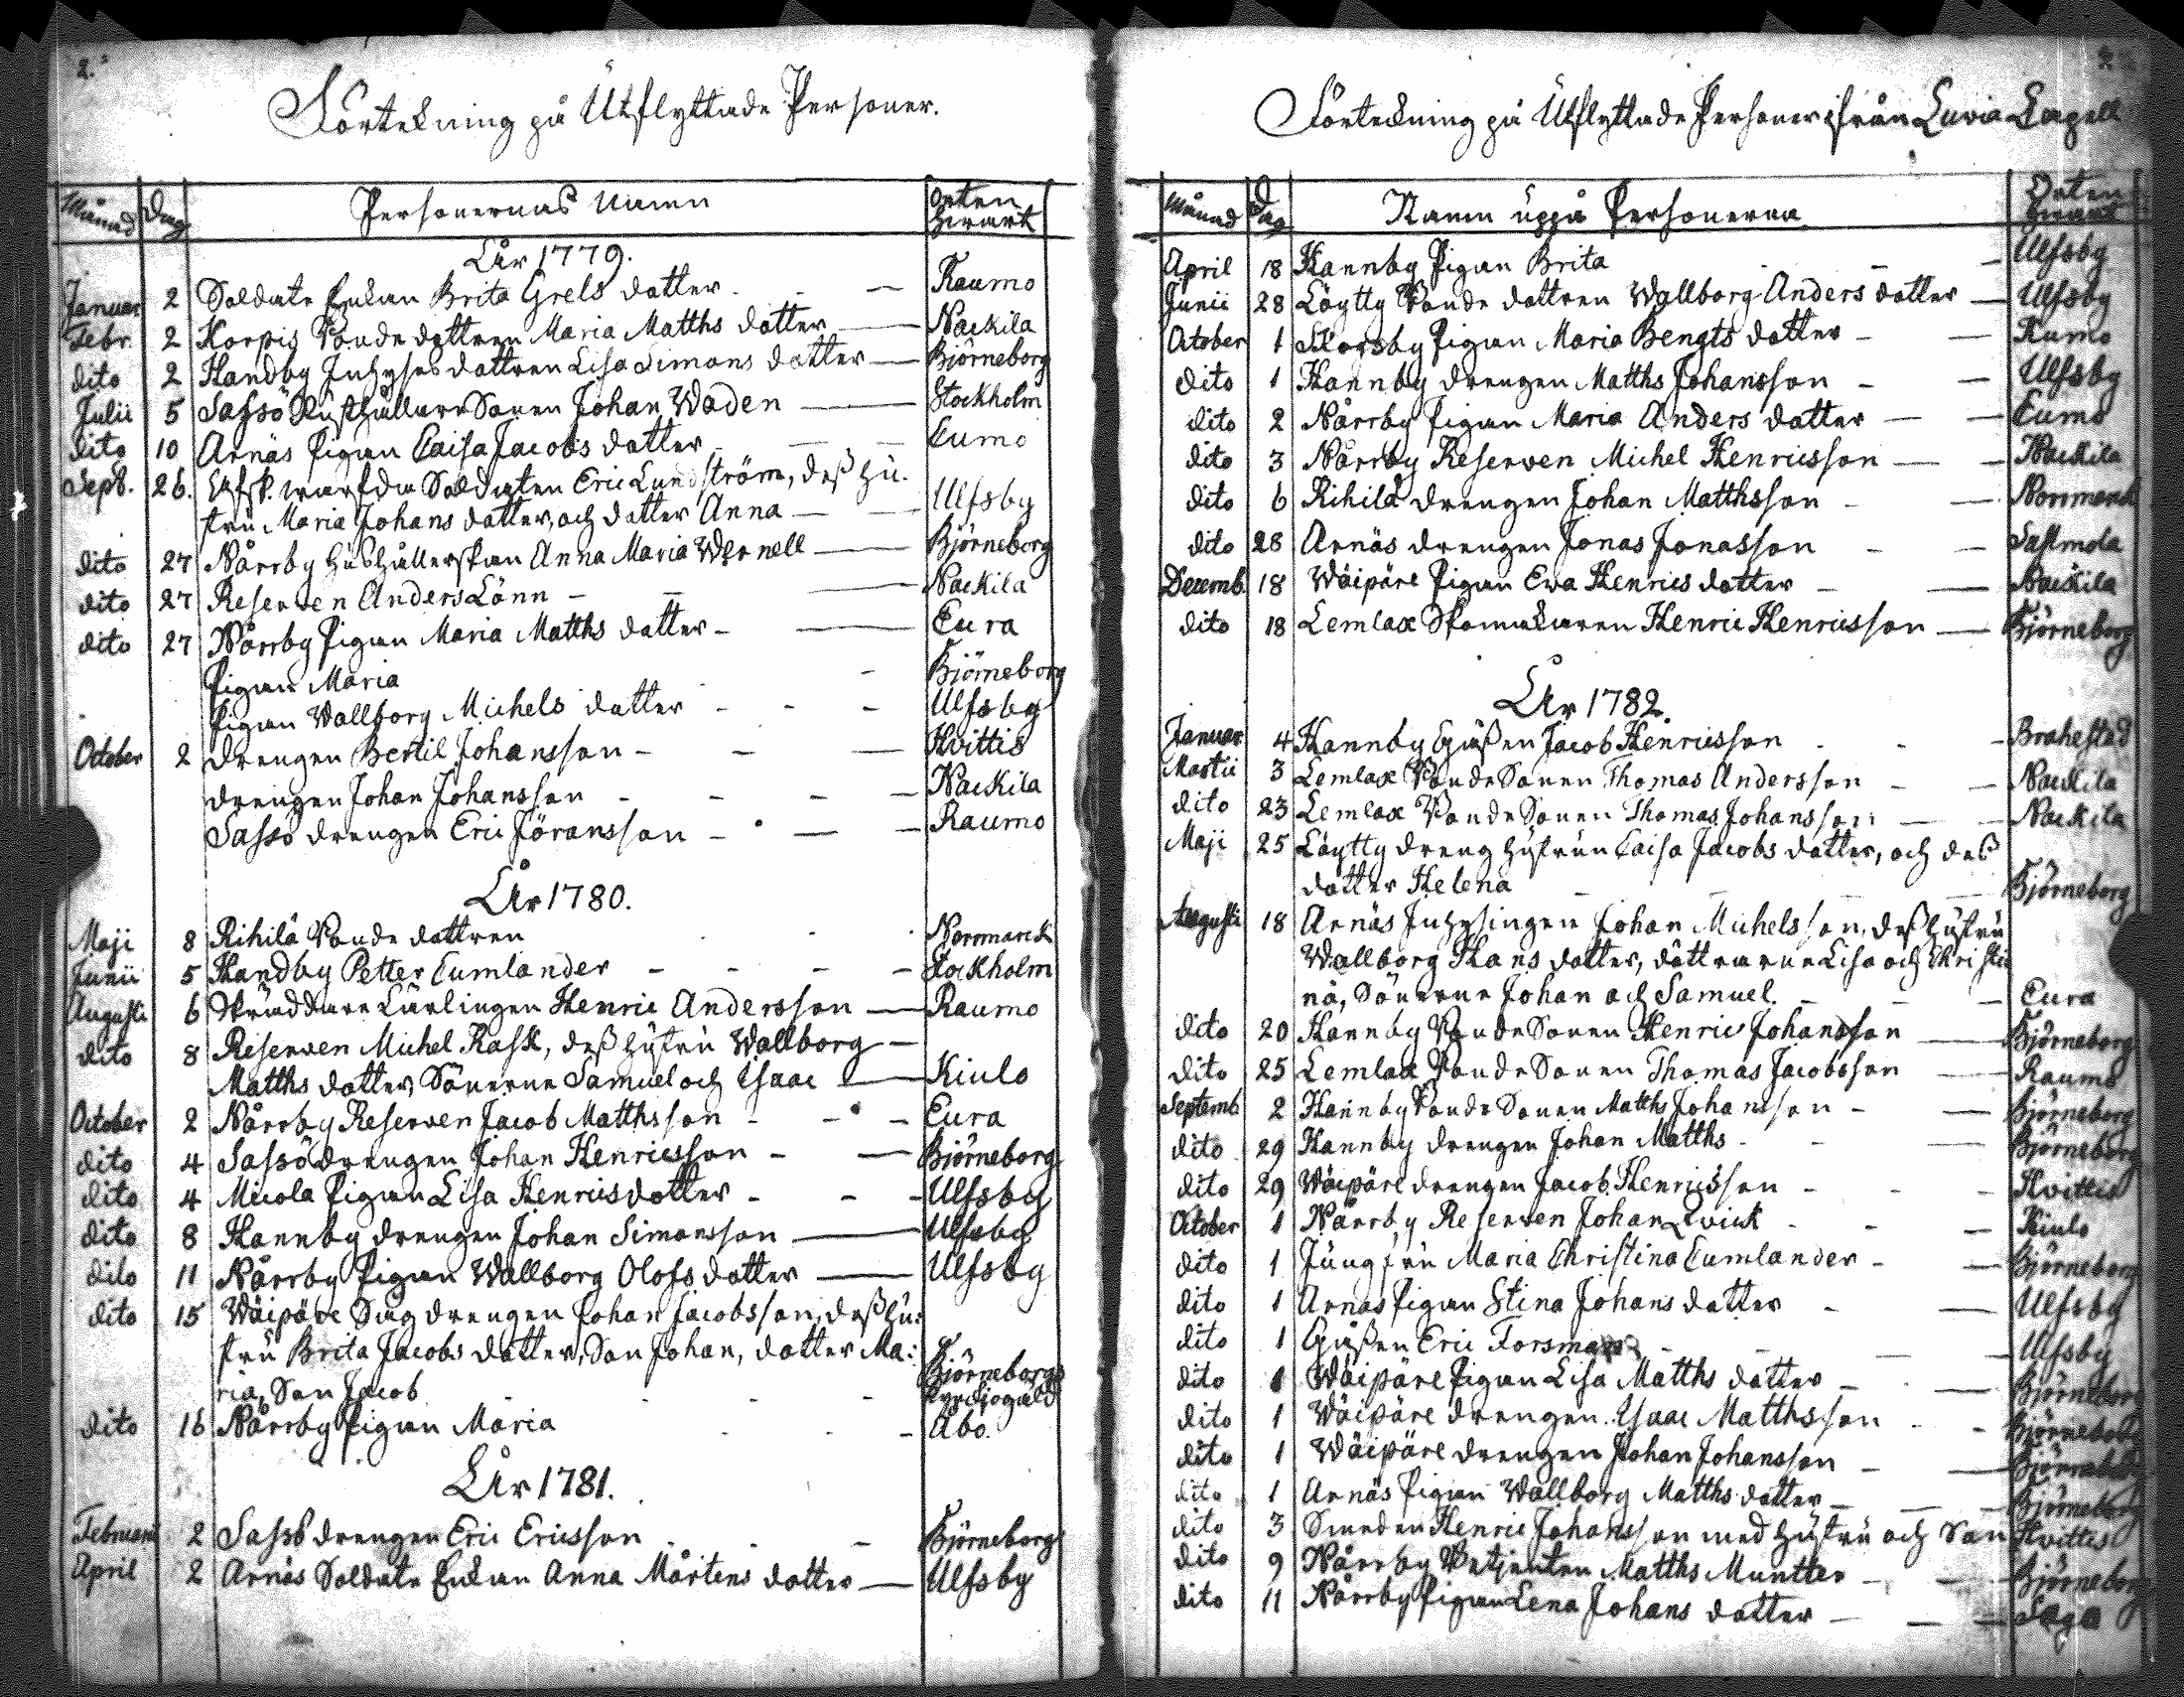 2.
Förtekning på Utflyttade Personer.
Månad Dag Personernas namn Orten hwart
År 1779.
Januar 2 Soldats Enkan Brita Grels dotter Raumo
Febr. 2 Korpis Bonde dottren Maria Matths dotter Nackila
dito 2 Handby Inhyses dottren Lisa Simons dotter Björneborg
Julii 5 Sassö Rusthållare Sonen Johan Waden Stockholm
dito 10 Arnäs Pigan Caisa Jacobs dotter Cumo
Sept. 26. warfda Soldaten Eric Lundström, dess hu-
stru Maria Johans dotter, och dotter Anna Ulfsby
dito 27 Nårrby Hushållerskan Anna Maria Wernell Björneborg
dito 27 Reserven Anders Lönn Nackila
dito 27 Nårrby Pigan Maria Matths dotter Eura
Pigan Maria Björneborg
Pigan Wallborg Michels dotter Ulfsby
October 2 drengen Bertil Johansson Hvittis
drengen Johan Johansson Nackila
Sassö drengen Eric Jöransson Raumo
År 1780.
Maji 8 Rihilä Bonde dottren Norrmark
Junii 5 Handby Petter Cumlander Stockholm
Augusti 6 Skräddare Lärlingen Henric Andersson Raumo
dito 8 Reserven Michel Rask, dess hustru Wallborg
Matths dotter, Sönerne Samuel och Isaac Kiulo
October 2 Nårrby Reserven Jacob Matthsson Eura
dito 4 Sassö drengen Johan Henricsson Björneborg
dito 4 Micola Pigan Lisa Henricsdotter Ulfsby
dito 8 Hannby drengen Johan Simonsson Ulfsby
dito 11 Nårrby Pigan Wallborg Olofs dotter Ulfsby
dito 15 Wäipäre Sag drengen Johan Jacobsson, dess hu-
stru Brita Jacobs dotter, Son Johan, dotter Ma-
ria, Son Jacob Björneborgs
dito 16 Nårrby Pigan Maria Åbo.
År 1781.
Februarii 2 Sassö drengen Eric Ericsson Björneborg
April 2 Arnäs Soldats Enkan Anna Mårtens dotter Ulfsby
Förteckning på Utflyttade Personer ifrån Luvia Capell
Månad Dag Namn uppå Personerna Orten hwart
April 18 Hannby Pigan Brita Ulfsby
Junii 28 Löytty Bonde dottren Wallborg Anders dotter Ulfsby
October 1 Pigan Maria Bengts dotter Kumo
dito 1 Hannby drengen Matths Johansson Ulfsby
dito 2 Nårrby Pigan Maria Anders dotter Cumo
dito 3 Nårrby Reserven Michel Henricsson Nackila
dito 6 Rihilä drengen Johan Matthsson Norrmark
dito 28 Arnäs drengen Jonas Jonasson Sastmola
Decemb. 18 Wäipäre Pigan Ewa Henrics dotter Nackila
dito 18 Lemlax Skomakaren Henric Henricsson Björneborg
År 1782.
Januar 4 Hannby Jacob Henricsson Brahestad
Martii 3 Lemlax Bonde Sonen Thomas Andersson Nackila
dito 23 Lemlax Bonde Sonen Thomas Johansson Nackila
Maji 25 Löytty dreng hustrun Caisa Jacobs dotter, och dess
dotter Helena Björneborg
Augusti 18 Arnäs Inhysingen Johan Michelsson, dess hustru
Wallborg Hans dotter, döttrarne Lisa och Christi
na, Sönerne Johan och Samuel. Eura
dito 20 Hannby Bonde Sonen Henric Johansson Björneborg
dito 25 Lemlax Bonde Sonen Thomas Jacobsson Raumo
Septemb. 2 Hannby Bonde Sonen Matths Johansson Björneborg
dito 29 Hannby drengen Johan Matths Björneborg
dito 29 Wäipäre drengen Jacob Henricsson Hvittis
October 1 Nårrby Reserven Johan Qvick Kiulo
dito 1 Jungfru Maria Christina Cumlander Björneborg
dito 1 Arnäs Pigan Stina Johans dotter Ulfsby
dito 1 Eric Forsman Ulfsby
dito 1 Wäipäre Pigan Lisa Matths dotter Björneborg
dito 1 Wäipäre drengen Isaac Matthsson Björneborg
dito 1 Wäipäre drengen Johan Johansson Björneborg
dito 1 Arnäs Pigan Wallborg Matths dotter Björneborg
dito 3 Smeden Henric Johansson med hustru och Son Hvittis
dito 9 Nårrby Betjenten Matths Muntter Björneborg
dito 11 Nårrby Pigan Lena Johans dotter